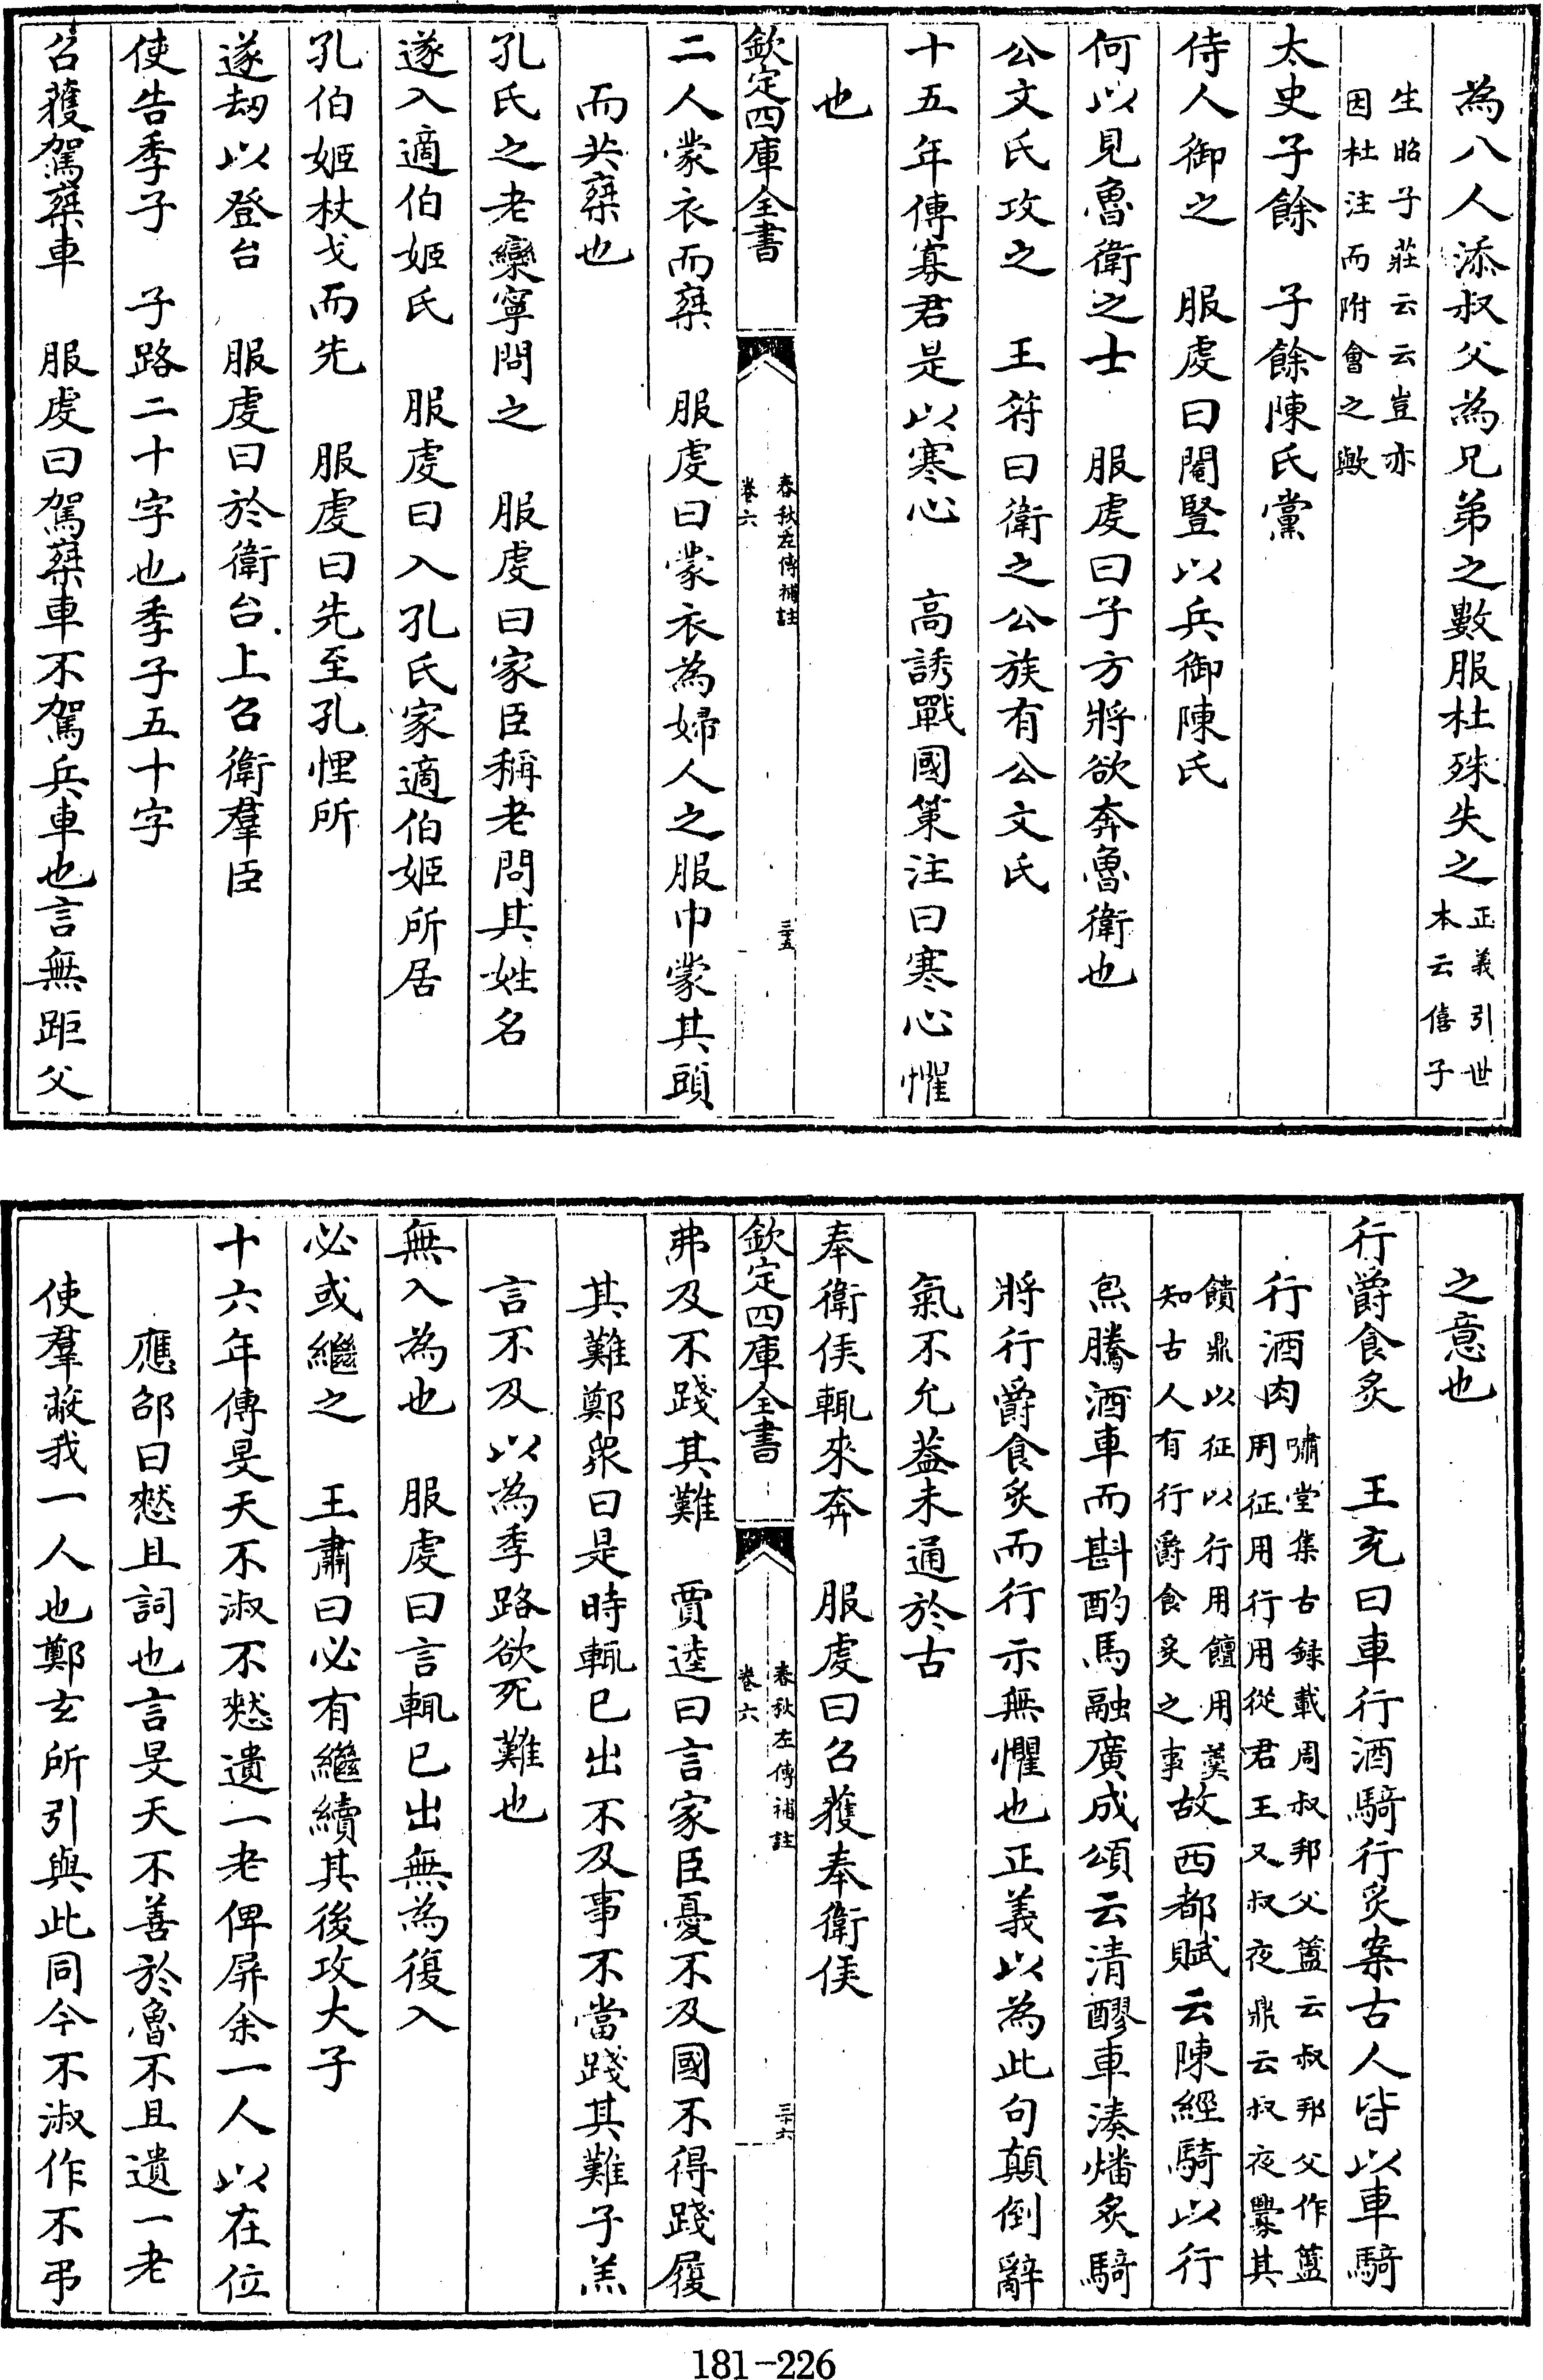 為八人添叔父為兄弟之數服杜殊失之正義引世本云僖子
生昭子莊云云豈亦因杜注而附會之歟
太史子餘　子餘陳氏黨
侍人御之　服虔曰閹豎以兵御陳氏
何以見魯衛之士　服虔曰子方將欲奔魯衛也
公文氏攻之　王符曰衛之公族有公文氏
十五年傳寡君是以寒心　高誘戰國策注曰寒心懼
也
欽定四庫全書　春秋左傳補註　卷六　三五
二人蒙衣而乗　服虔曰蒙衣為婦人之服巾蒙其頭
而共乗也
孔氏之老欒寧問之　服虔曰家臣稱老問其姓名
遂入適伯姬氏　服虔曰入孔氏家適伯姬所居
孔伯姬杖戈而先　服虔曰先至孔悝所
遂刼以登台　服虔曰於衛台上召衛羣臣
使告季子　子路二十字也季子五十字
召獲駕乗車　服虔曰駕乗車不駕兵車也言無距父
之意也
行爵食炙　王充曰車行酒騎行炙案古人皆以車騎
行酒肉嘯堂集古録載周叔邦父簠云叔邦父作簠用征用行用從君王又叔夜鼎云叔夜鑄其
饋鼎以征以行用饘用羹知古人有行爵食炙之事故西都賦云陳經騎以行
炰騰酒車而斟酌馬融廣成頌云清醪車湊燔炙騎
將行爵食炙而行示無懼也正義以為此句顛倒辭
氣不允葢未通於古
奉衛侯輒來奔　服虔曰召獲奉衛侯
欽定四庫全書　春秋左傳補註　卷六　三六
弗及不踐其難　賈逵曰言家臣憂不及國不得踐履
其難鄭衆曰是時輒已出不及事不當踐其難子羔
言不及以為季路欲死難也
無入為也　服虔曰言輒已出無為復入
必或繼之　王肅曰必有繼續其後攻大子
十六年傳旻天不淑不憖遺一老俾屏余一人以在位
應邵曰憖且詞也言旻天不善於魯不且遺一老
使羣蔽我一人也鄭玄所引與此同今不淑作不弔
181-226